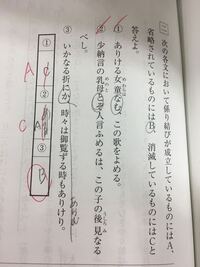 二 次の各文において係り結びが成立しているものにはA、
省略されているものにはB、消滅しているものにはCと
答えよ。
① ありける女童なむ、この歌をよめる。
② 少納言の乳母とぞ人言ふめるは、この子の後見なる
べし。
③ いかなる折にか、時々は御覧ずる時もありけり。
めのと
うしろみ
① ② ③
A
C
A
B